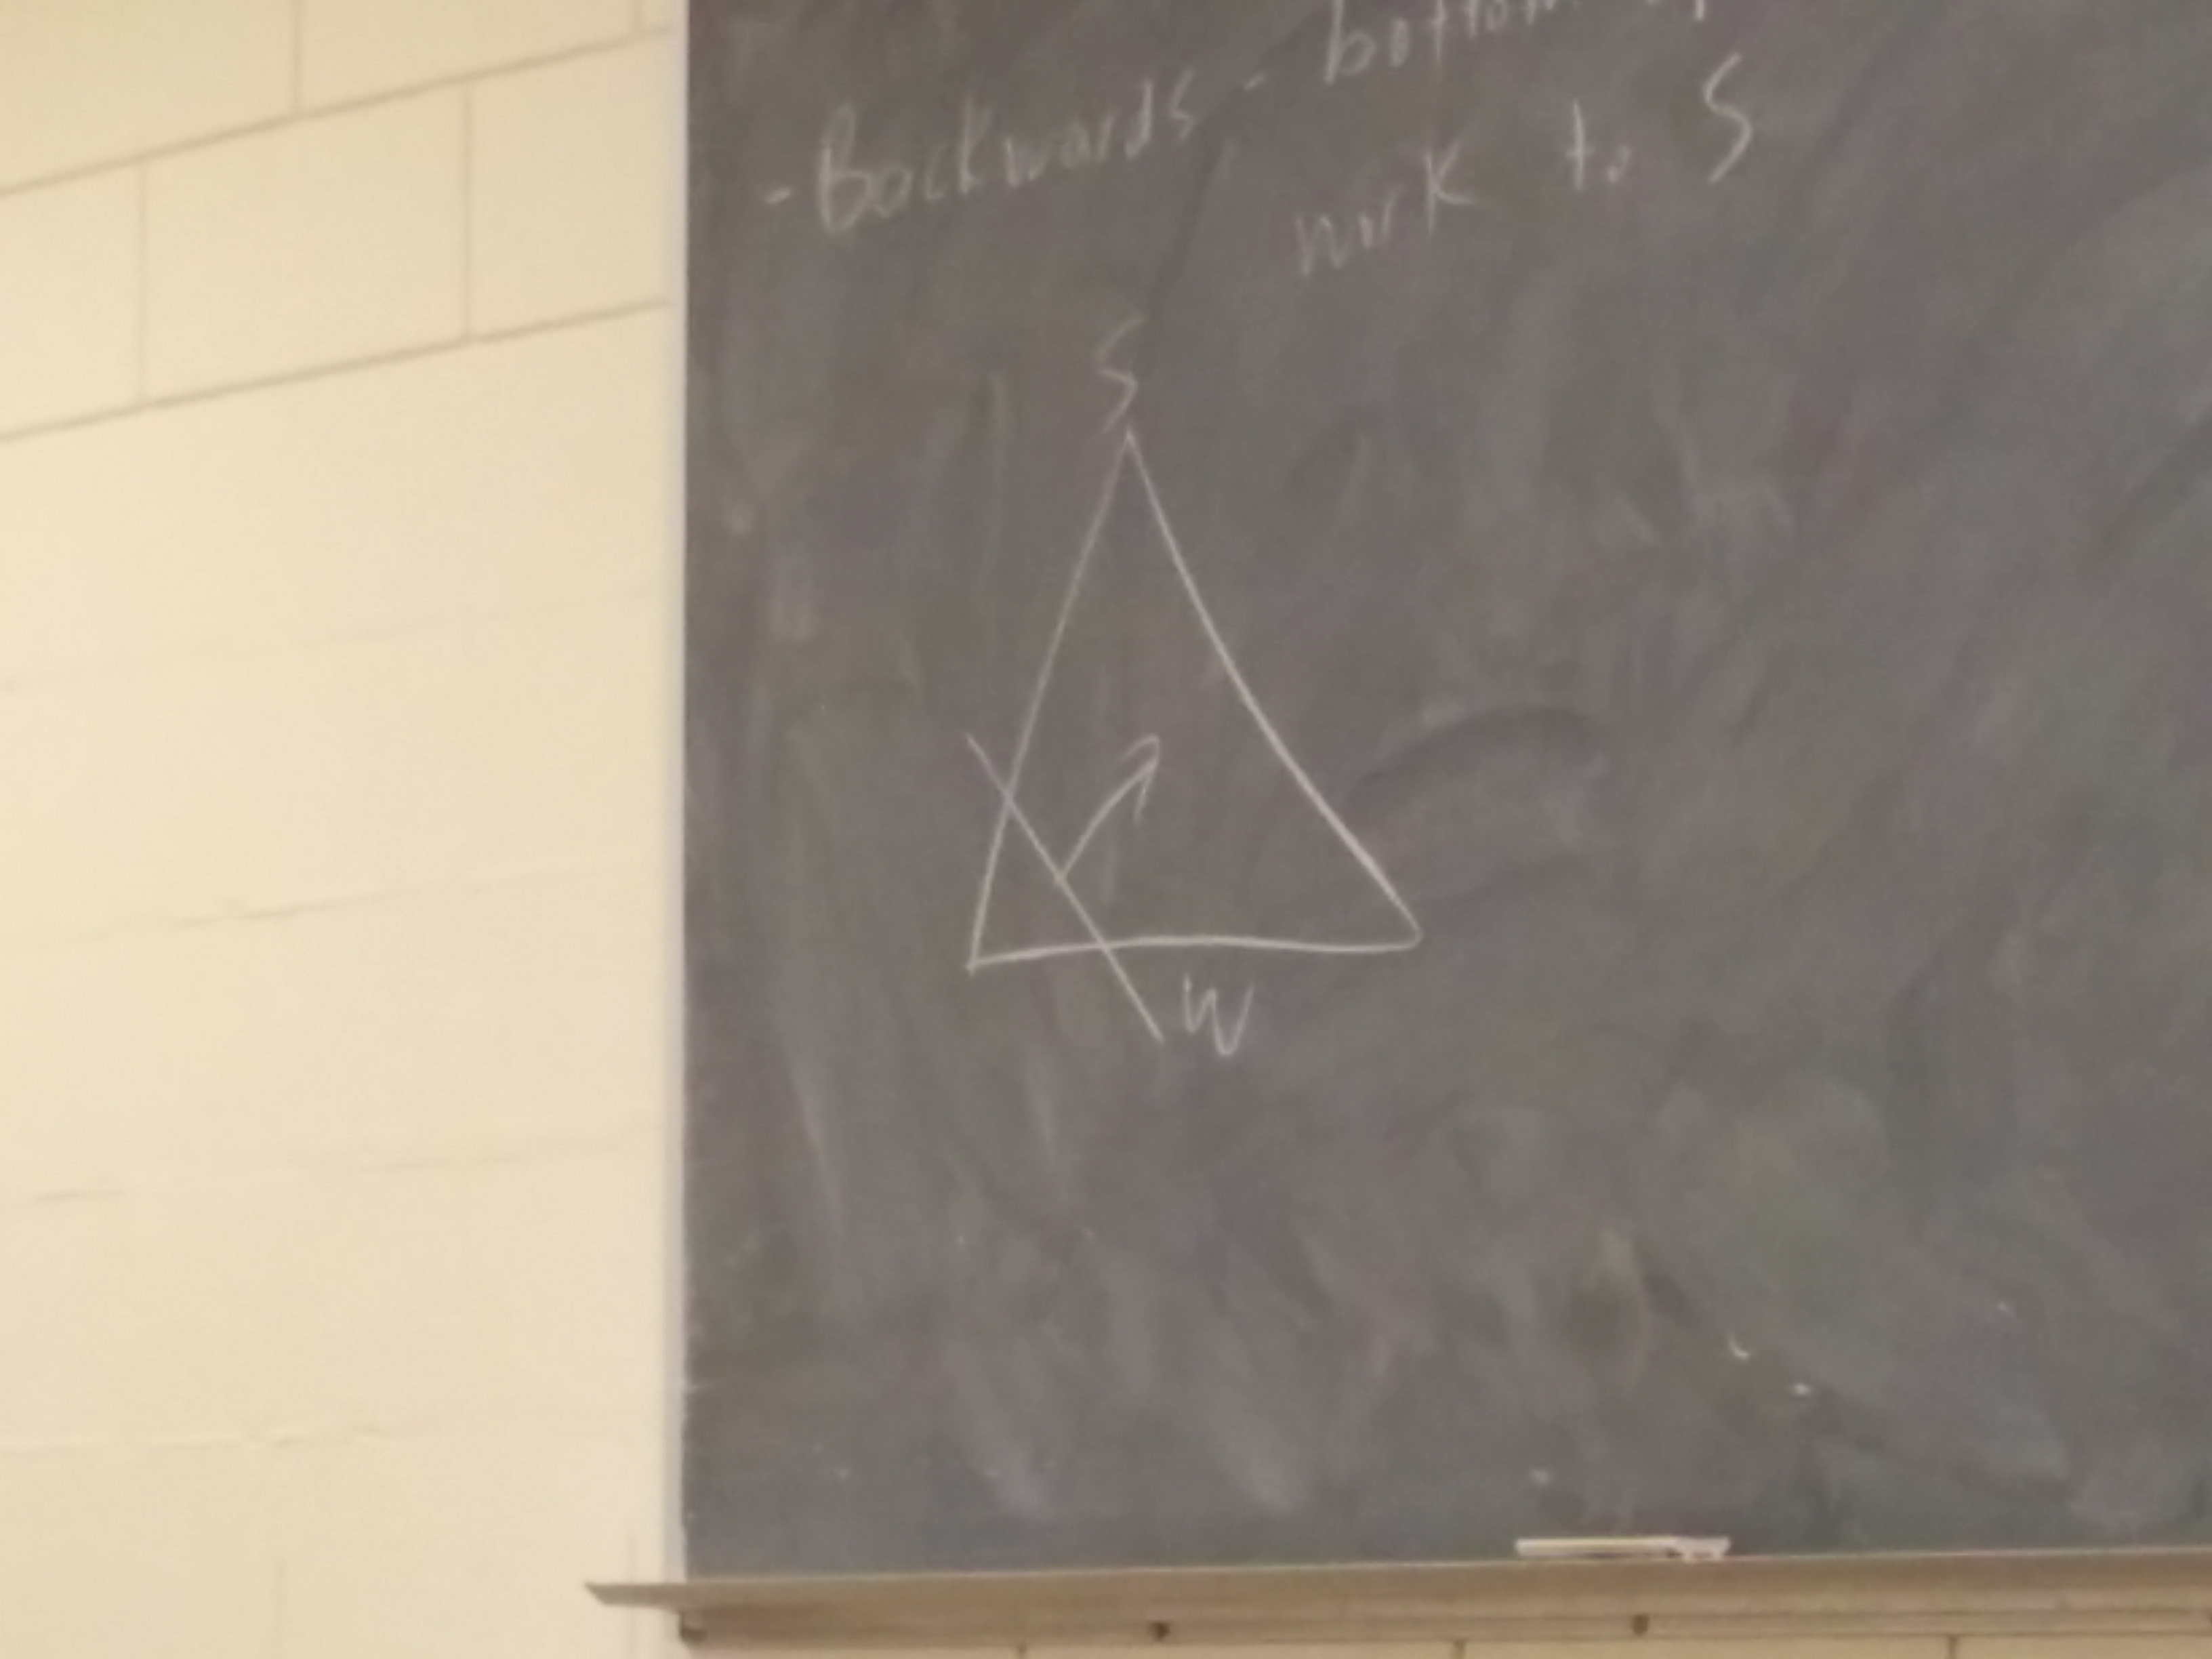 - Backwards - bottom
work to S
S
W